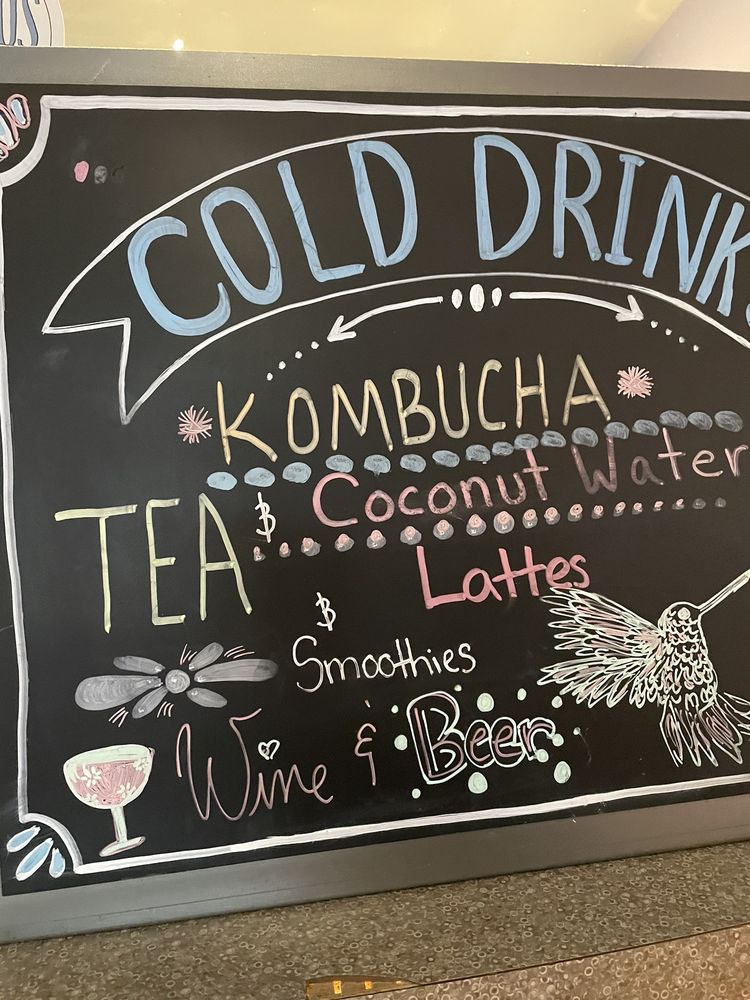 COLD DRINKS
KOMBUCHA
TEA & Coconut Water
Lattes
& Smoothies
Wine & Beer